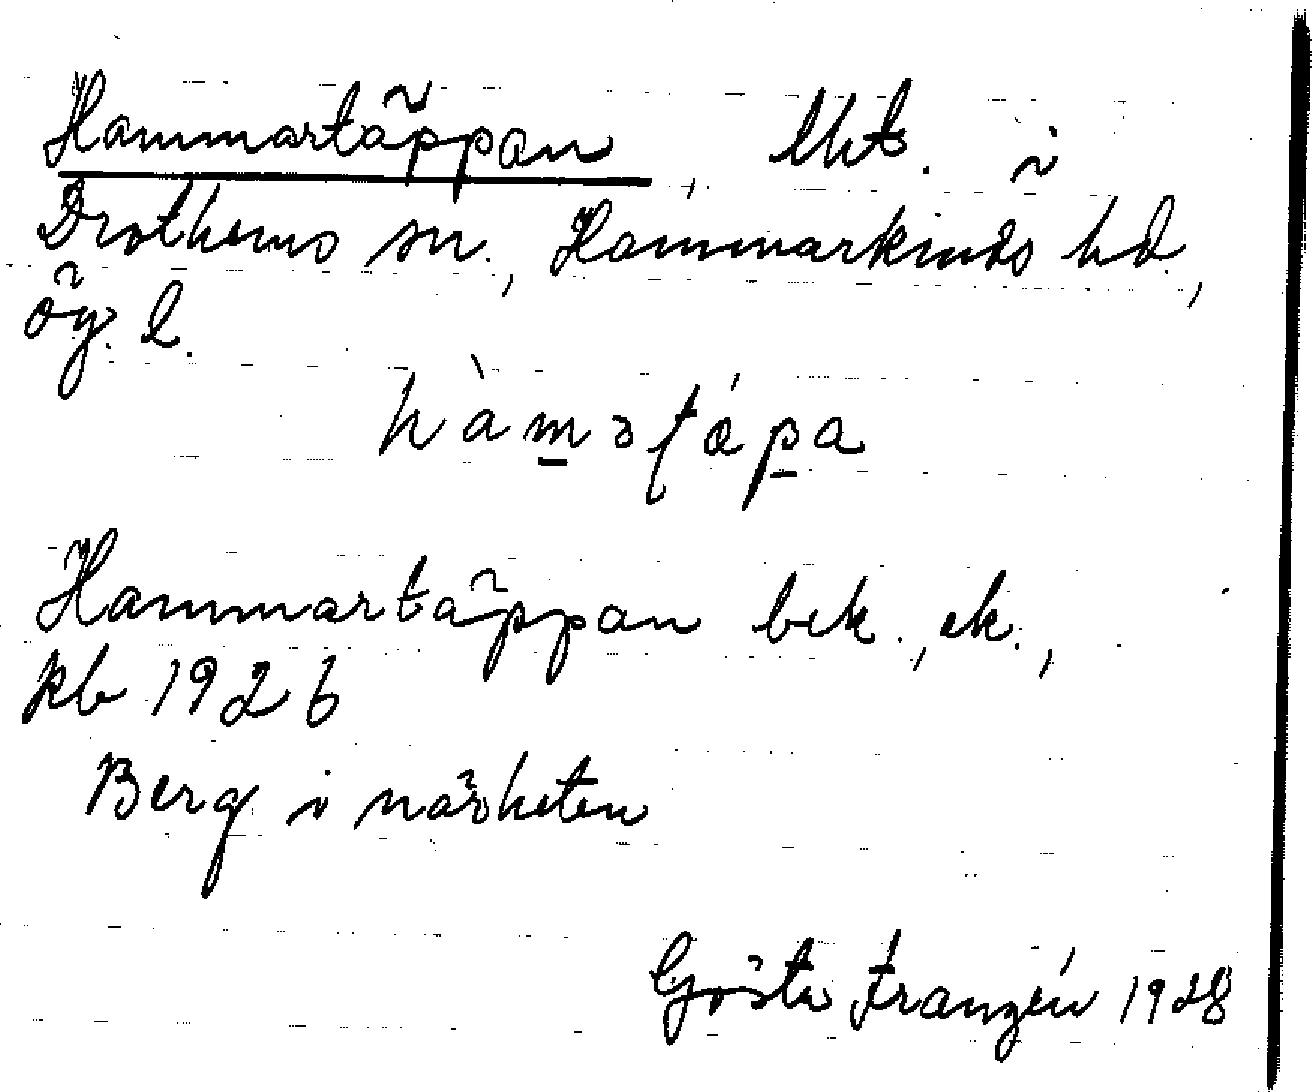 Hammartäppan, lht. i
Drothems sn., Hammarkinds hd,
Ög. l.
hàmatǽpa
Hammartäppan bek., ek.,
kb 1926
Berg i närheten
Gösta Franzén 1928